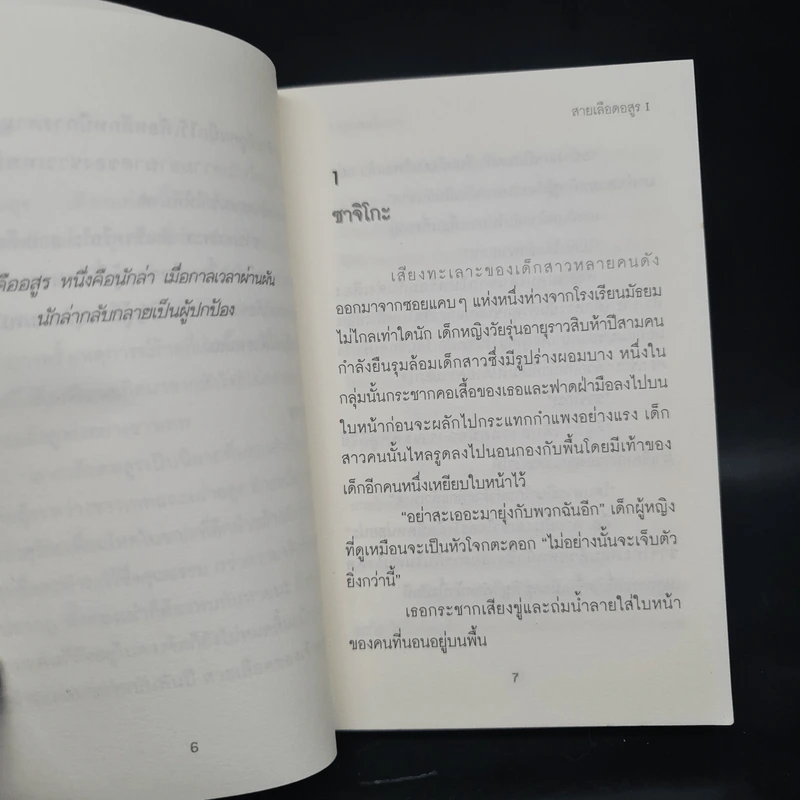 คืออสูร หนึ่งคือนักล่า เมื่อกาลเวลาผ่านผัน
นักล่ากลับกลายเป็นผู้ปกป้อง
6
สายเลือดอสูร I
1
ซาจิโกะ
เสียงทะเลาะของเด็กสาวหลายคนดัง
ออกมาจากซอยแคบๆ แห่งหนึ่งห่างจากโรงเรียนมัธยม
ไม่ไกลเท่าใดนัก เด็กหญิงวัยรุ่นอายุราวสิบห้าปีสามคน
กำลังยืนรุมล้อมเด็กสาวซึ่งมีรูปร่างผอมบาง หนึ่งใน
กลุ่มนั้นกระชากคอเสื้อของเธอและฟาดฝ่ามือลงไปบน
ใบหน้าก่อนจะผลักไปกระแทกกำแพงอย่างแรง เด็ก
สาวคนนั้นไหลรูดลงไปนอนกองกับพื้นโดยมีเท้าของ
เด็กอีกคนหนึ่งเหยียบใบหน้าไว้
“อย่าสะเออะมายุ่งกับพวกฉันอีก” เด็กผู้หญิง
ที่ดูเหมือนจะเป็นหัวโจกตะคอก “ไม่อย่างนั้นจะเจ็บตัว
ยิ่งกว่านี้”
เธอกระชากเสียงขู่และถ่มน้ำลายใส่ใบหน้า
ของคนที่นอนอยู่บนพื้น
7